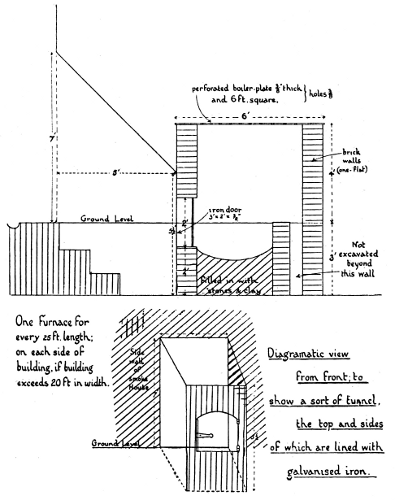 perforated boiler-plate ⅜" thick
and 6 ft. square.
holes ⅜
6'
7'
8'
iron door
3' x 2' x ⅜"
2'
brick
walls
(one-flat)
Ground Level
3'
Not
excavated
beyond
this wall
Filled in with
stones & clay
One furnace for
every 25 ft. length;
on each side of
building, if building
exceeds 20 ft in width.
Side
wall
of
smoke
House
Ground Level
Diagramatic view
from front; to
show a sort of tunnel,
the top and sides
of which are lined with
galvanised iron.